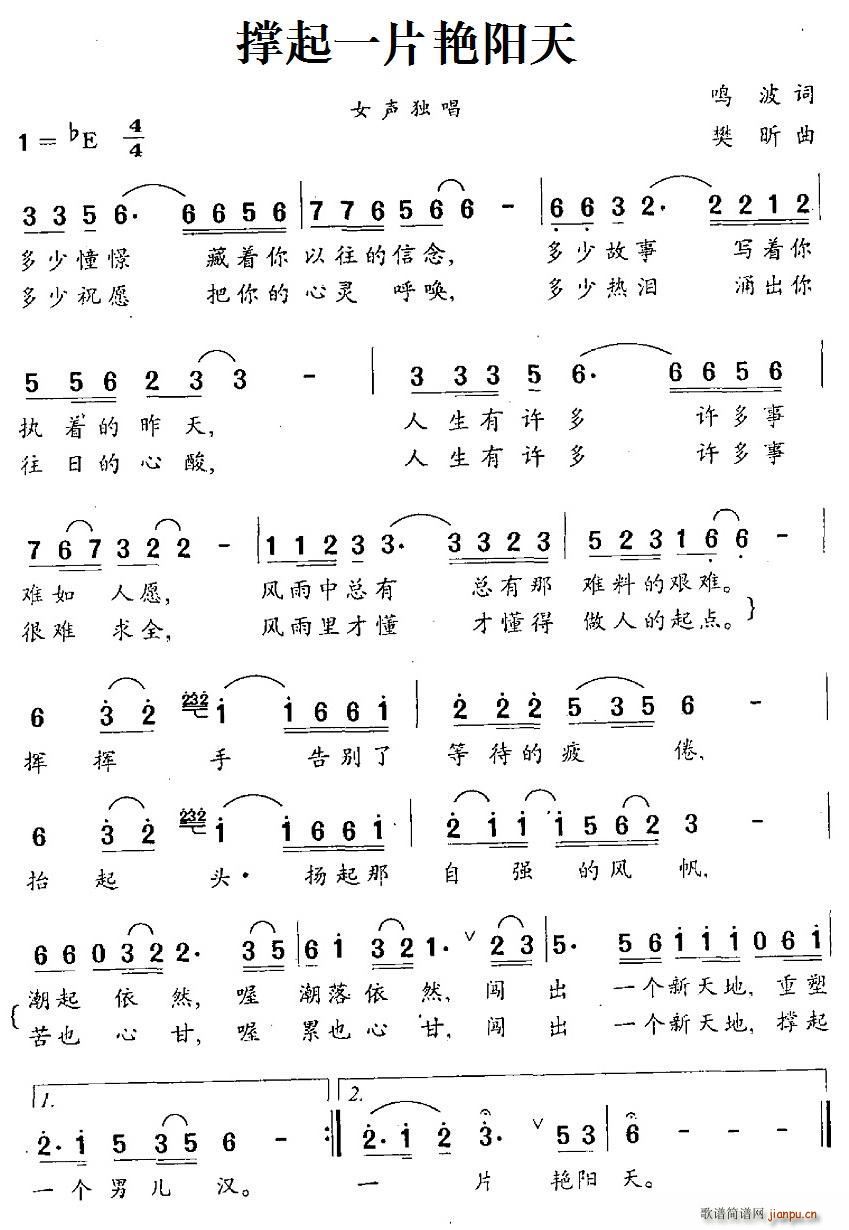 撑起一片艳阳天
女声独唱
鸣 波 词
1=♭E 4/4
樊 昕 曲
3 3 5 6· 6 6 5 6 | 7 7 6 5 6 6 - | 6 6 3 2· 2 2 1 2 |
多少憧憬 藏着你 以往的信念, 多少故事 写着你
多少祝愿 把你的 心灵 呼唤, 多少热泪 涌出你
5 5 6 2 3 3 - | 3 3 3 5 6· 6 6 5 6 |
执着的昨天, 人生有许多 许多事
往日的心酸, 人生有许多 许多事
7 6 7 3 2 2 - | 1 1 2 3 3· 3 3 2 3 | 5 2 3 1 6 6 - |
难如 人愿, 风雨中总有 总有那 难料的艰难。
很难 求全, 风雨里才懂 才懂得 做人的起点。}
6 3 2 232 1 1 6 6 1 | 2 2 2 5 3 5 6 - |
挥 挥 手 告别了 等待的疲 倦,
6 3 2 232 1 1 6 6 1 | 2 1 1 1 5 6 2 3 - |
抬 起 头· 扬起那 自 强 的风 帆,
6 6 0 3 2 2· 3 5 | 6 1 3 2 1· ∨ 2 3 | 5· 5 6 1 1 1 0 6 1 |
潮起 依 然, 喔 潮落依 然, 闯 出 一个新天地, 重塑
{苦也 心 甘, 喔 累也心 甘, 闯 出 一个新天地, 撑起
1. 2.
2· 1 5 3 5 6 - :| 2· 1 2 3· ∨ 5 3 | 6 - - - ‖
一 个 男 儿 汉。 一 片 艳阳 天。
歌谱简谱网
jianpu.cn